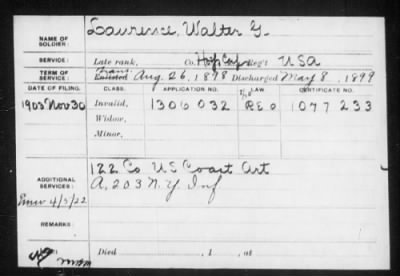 NAME OF SOLDIER: Lawrence, Walter G.
SERVICE: Late rank, Co. Hosp Corps Reg't USA
TERM OF SERVICE: Trans. Enlisted Aug. 26, 1898 Discharged May 8, 1899
DATE OF FILING. CLASS. APPLICATION NO. LAW. CERTIFICATE NO.
1903 Nov 30 Invalid, 1306032 Reo 1077233
Widow,
Minor,
ADDITIONAL SERVICES: 122 Co US Coast Art
A, 203 N.Y. Inf
4/5/22
REMARKS:
Died , 1 , at